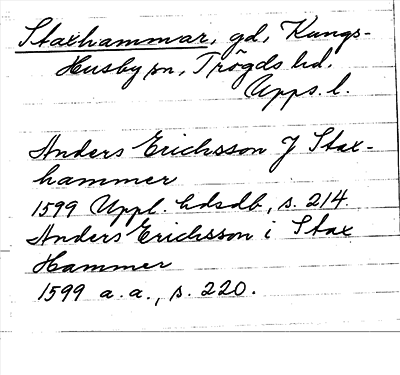 Staxhammar, gd, Kungs-
Husby sn, Trögds hd,
Upps. l.
Anders Erichsson J Stax-
hammer
1599 Uppl. hdsdb, s. 214
Anders Erichsson i Stax
Hammer
1599 a. a., s. 220.